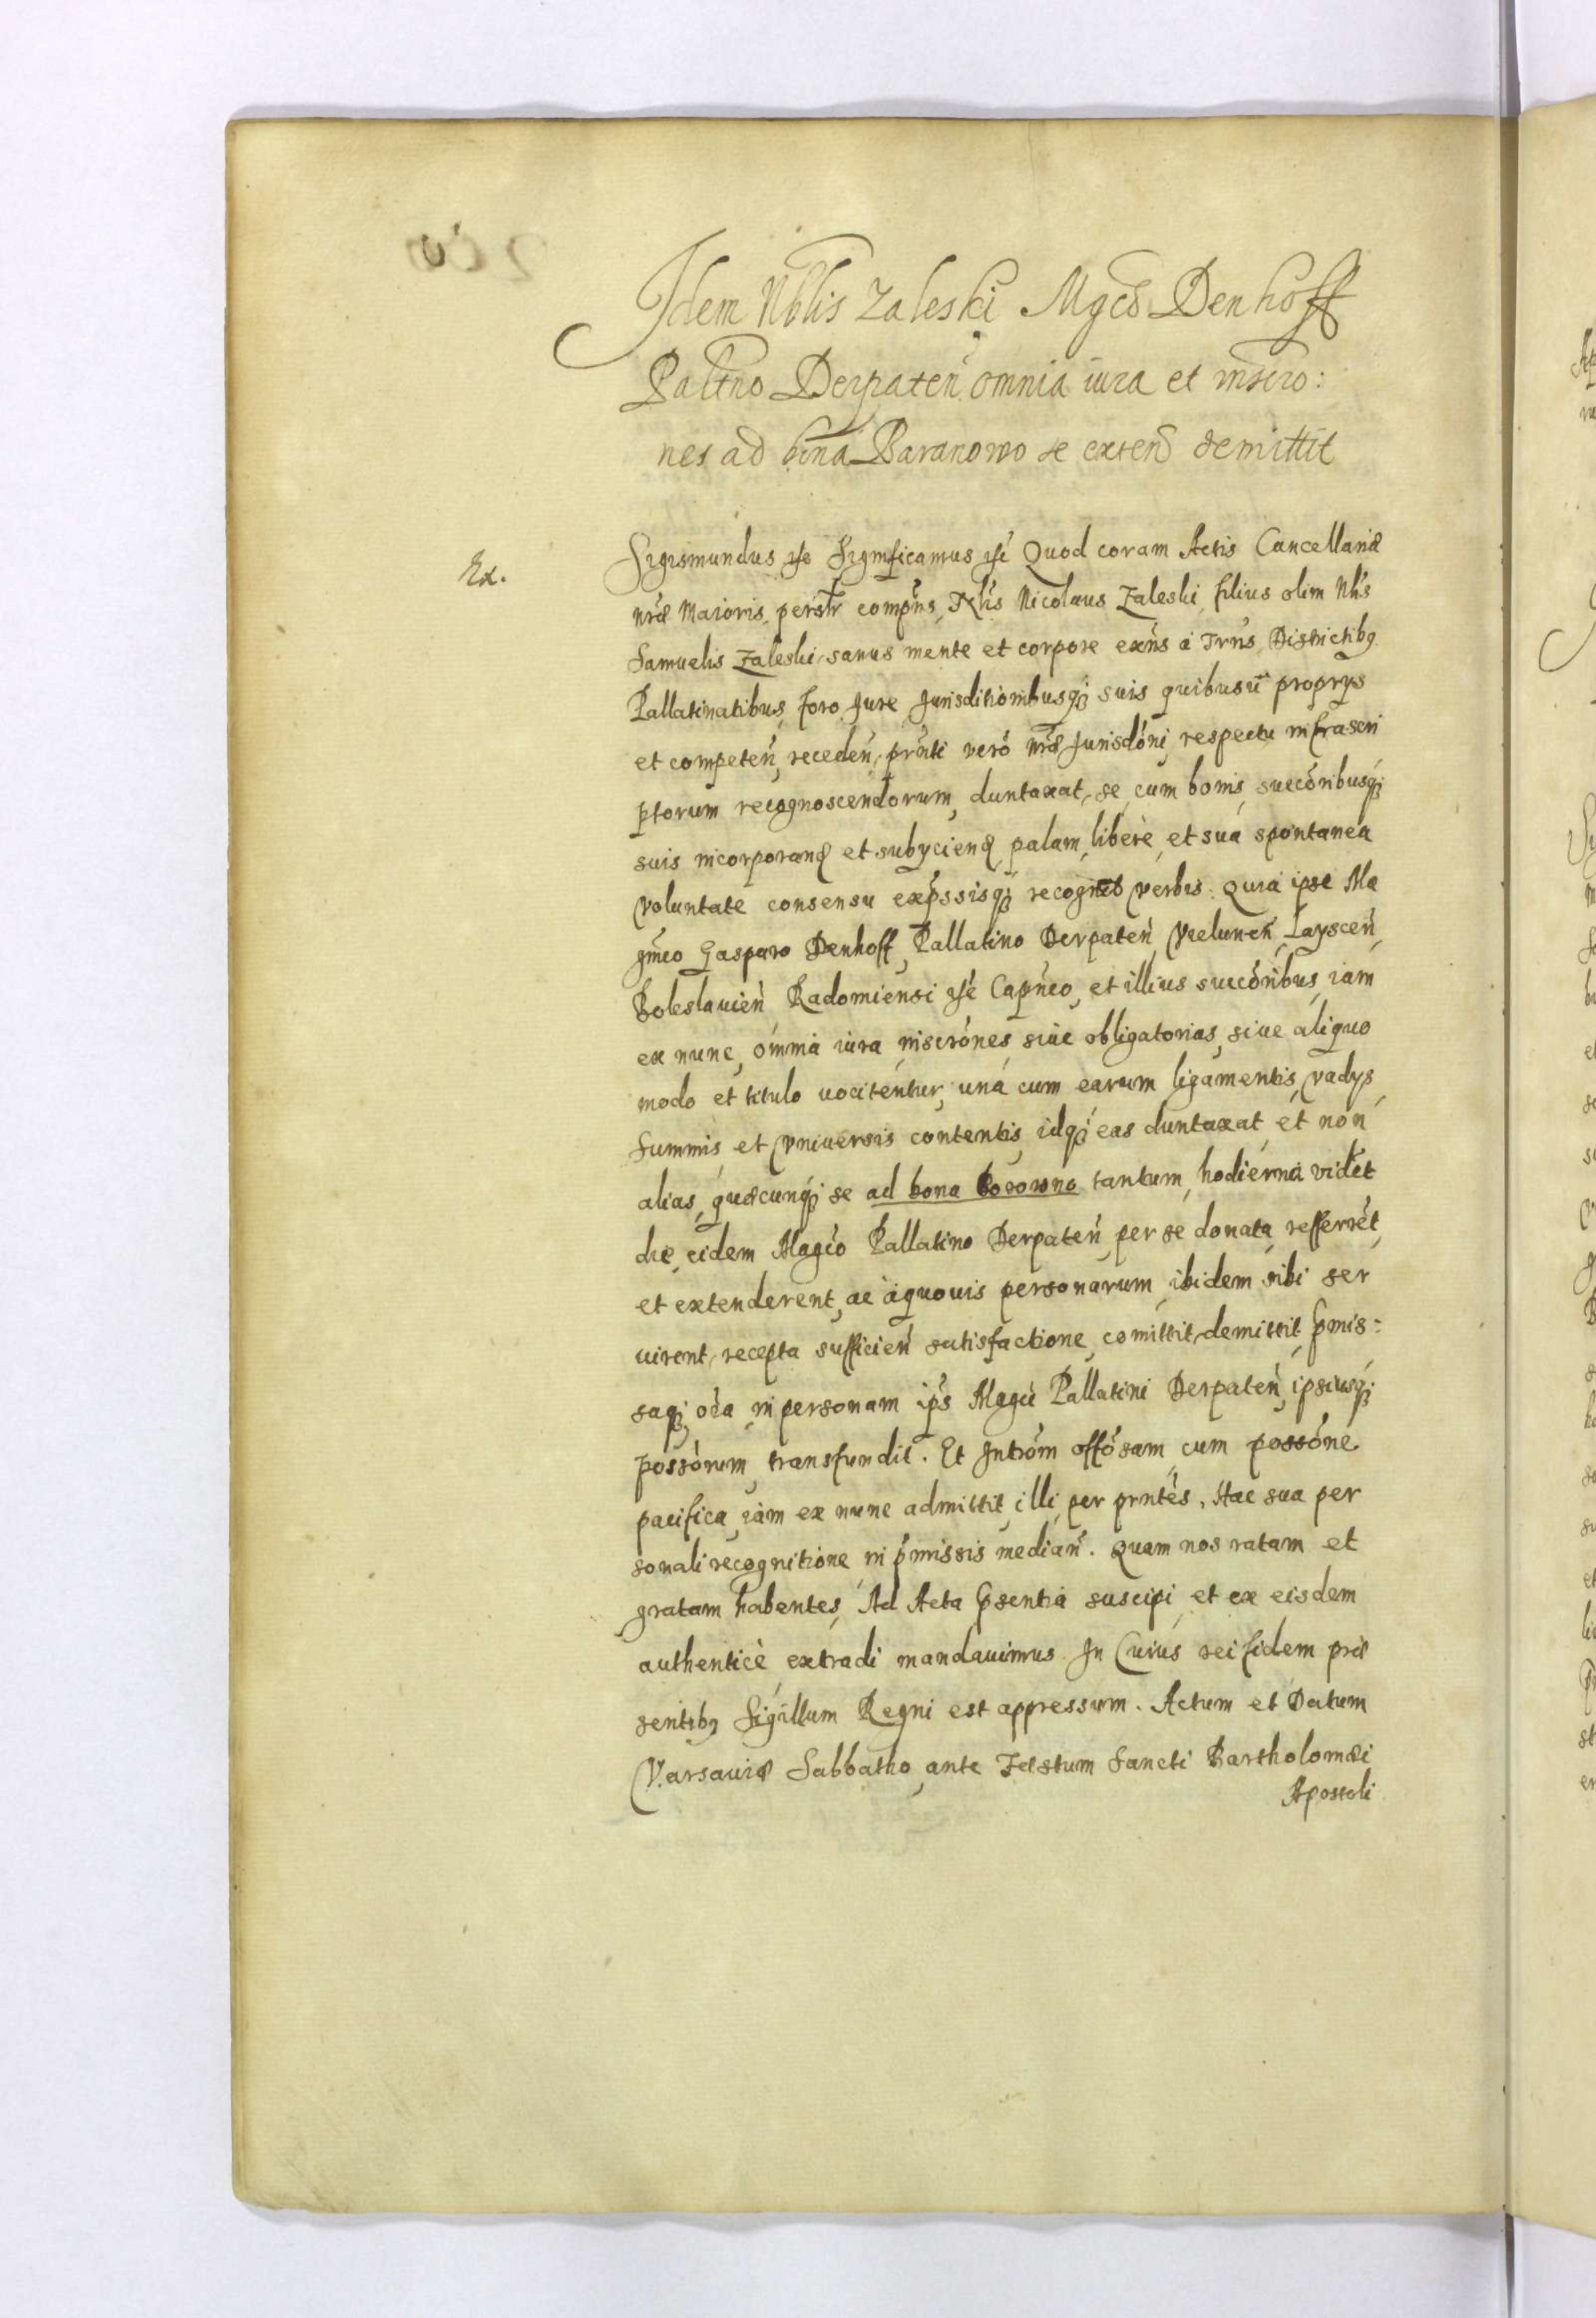 Idem Nblis Zaleski Mgco Denhoff
Paltno Derpaten omnia iura et inscro:
nes ad bona Baranowo se exten demittit
Ex.
Sigismundus etc Significamus etc Quod coram Actis Cancellariæ
nræ Maioris, personlr compns, Nblis Nicolaus Zaleski, filius olim Nblis
Samuelis Zaleski, sanus mente et corpore exns à Trris, Districtibq
Pallatinatibus, foro, Jure Jurisditionibusq suis quibusu proprys
et competen, receden, prnti verò nræ Jurisdoni, respectu infrascri
ptorum recognoscendorum, duntaxat, se, cum bonis, succoribusq
suis incorporand et subyciend, palam, liberè, et sua spontanea
voluntate consensu expssisq recognvt verbis. Quia ipse Ma
gnco Gasparo Denhoff, Pallatino Derpaten, Veelunen, Layscen,
Boleslauien Radomiensi etc Capneo, et illius succoribus, iam
ex nunc, omnia iura, inscrones, siue obligatorias, siue aliquo
modo et titulo vocitentur, unà cum earum ligamentis, vadys,
summis, et vniuersis contentis, idq eas duntaxat, et non
alias, quæcunq se ad bona Borowno tantum, hodierna vidlt
die, eidem Magco Pallatino Derpaten, per se donata, refferret,
et extenderent, ac à quouis personarum, ibidem sibi ser
uirent, recepta sufficien satisfactione, comittit, demittit, pmis:
saq oia, in personam ips Magci Pallatini Derpaten, ipsiusq
possorum, transfundit. Et Introm offosam, cum possone
pacifica, iàm ex nunc admittit, illi, per prntes, Hac sua per
sonali recognitione, in pmissis median. Quam nos ratam et
gratam habentes, Ad Acta psentia suscipi, et ex eisdem
authenticè extradi mandauimus. In Cuius rei fidem præ
sentibq Sigillum Regni est appressum. Actum et Datum
Varsauiæ Sabbatho, ante Festum Sancti Bartholomæi
Apostoli